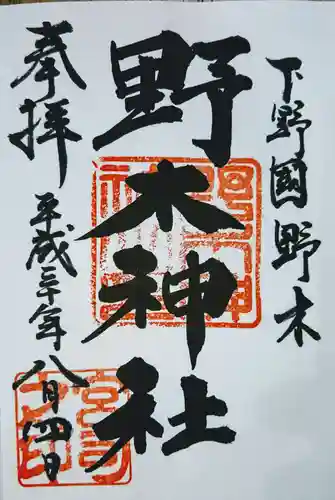 下野國野木
野木神社
奉拝
平成三十年八月四日